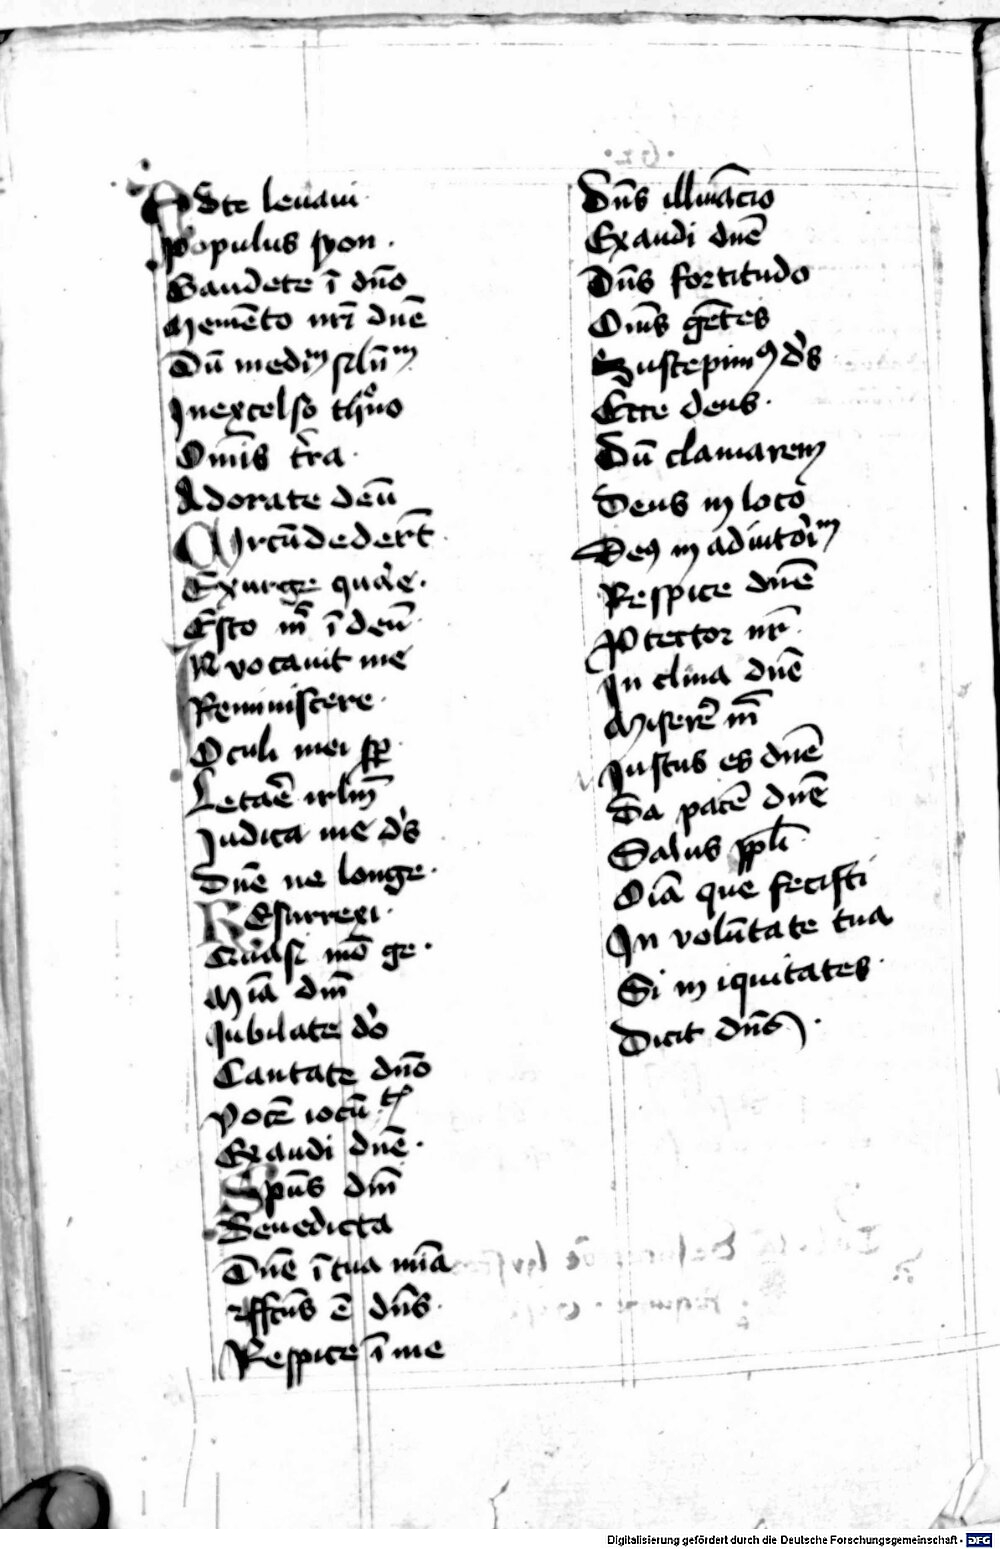 Adte leuaui
Populus syon .
Gaudete ī dn̄o
Memēto nr̄i dn̄e
Dū mediū silēn
In excelso thͦno
Omīs tr̄a .
Adorate deū
Circūdederūt
Exurge quare .
Esto m̄ ī deū
Invocauit me
Reminiscere
Oculi mei sp̄
Letaē irlm̄
Judica me ds
Dn̄e ne longe .
Resurrexi .
Quasi mō ge .
Mīa dn̄i
Jubilate dō
Cantate dn̄o
Vocē iocū
Exaudi dn̄e .
Sp̄us dn̄i
Benedicta
Dn̄e ī tua mīa
ffcūs ē dn̄s .
Respice ī me
Dn̄s illuīacio
Exaudi dn̄e
Dn̄s fortitudo
Om̄s gētes
Suscepimꝰ ds
Ecce deus .
Dū clamarem
Deus in loco
Deꝰ in adiutoriū
Respice dn̄e
Ptector nr̄
In clina dn̄e
Miserē m̄
Justus es dn̄e
Da pacē dn̄e
Salus ppl̄i
Oīa que fecisti
In volūtate tua
Si iniquitates .
Dicit dn̄s .
Digitalisierung gefördert durch die Deutsche Forschungsgemeinschaft - DFG